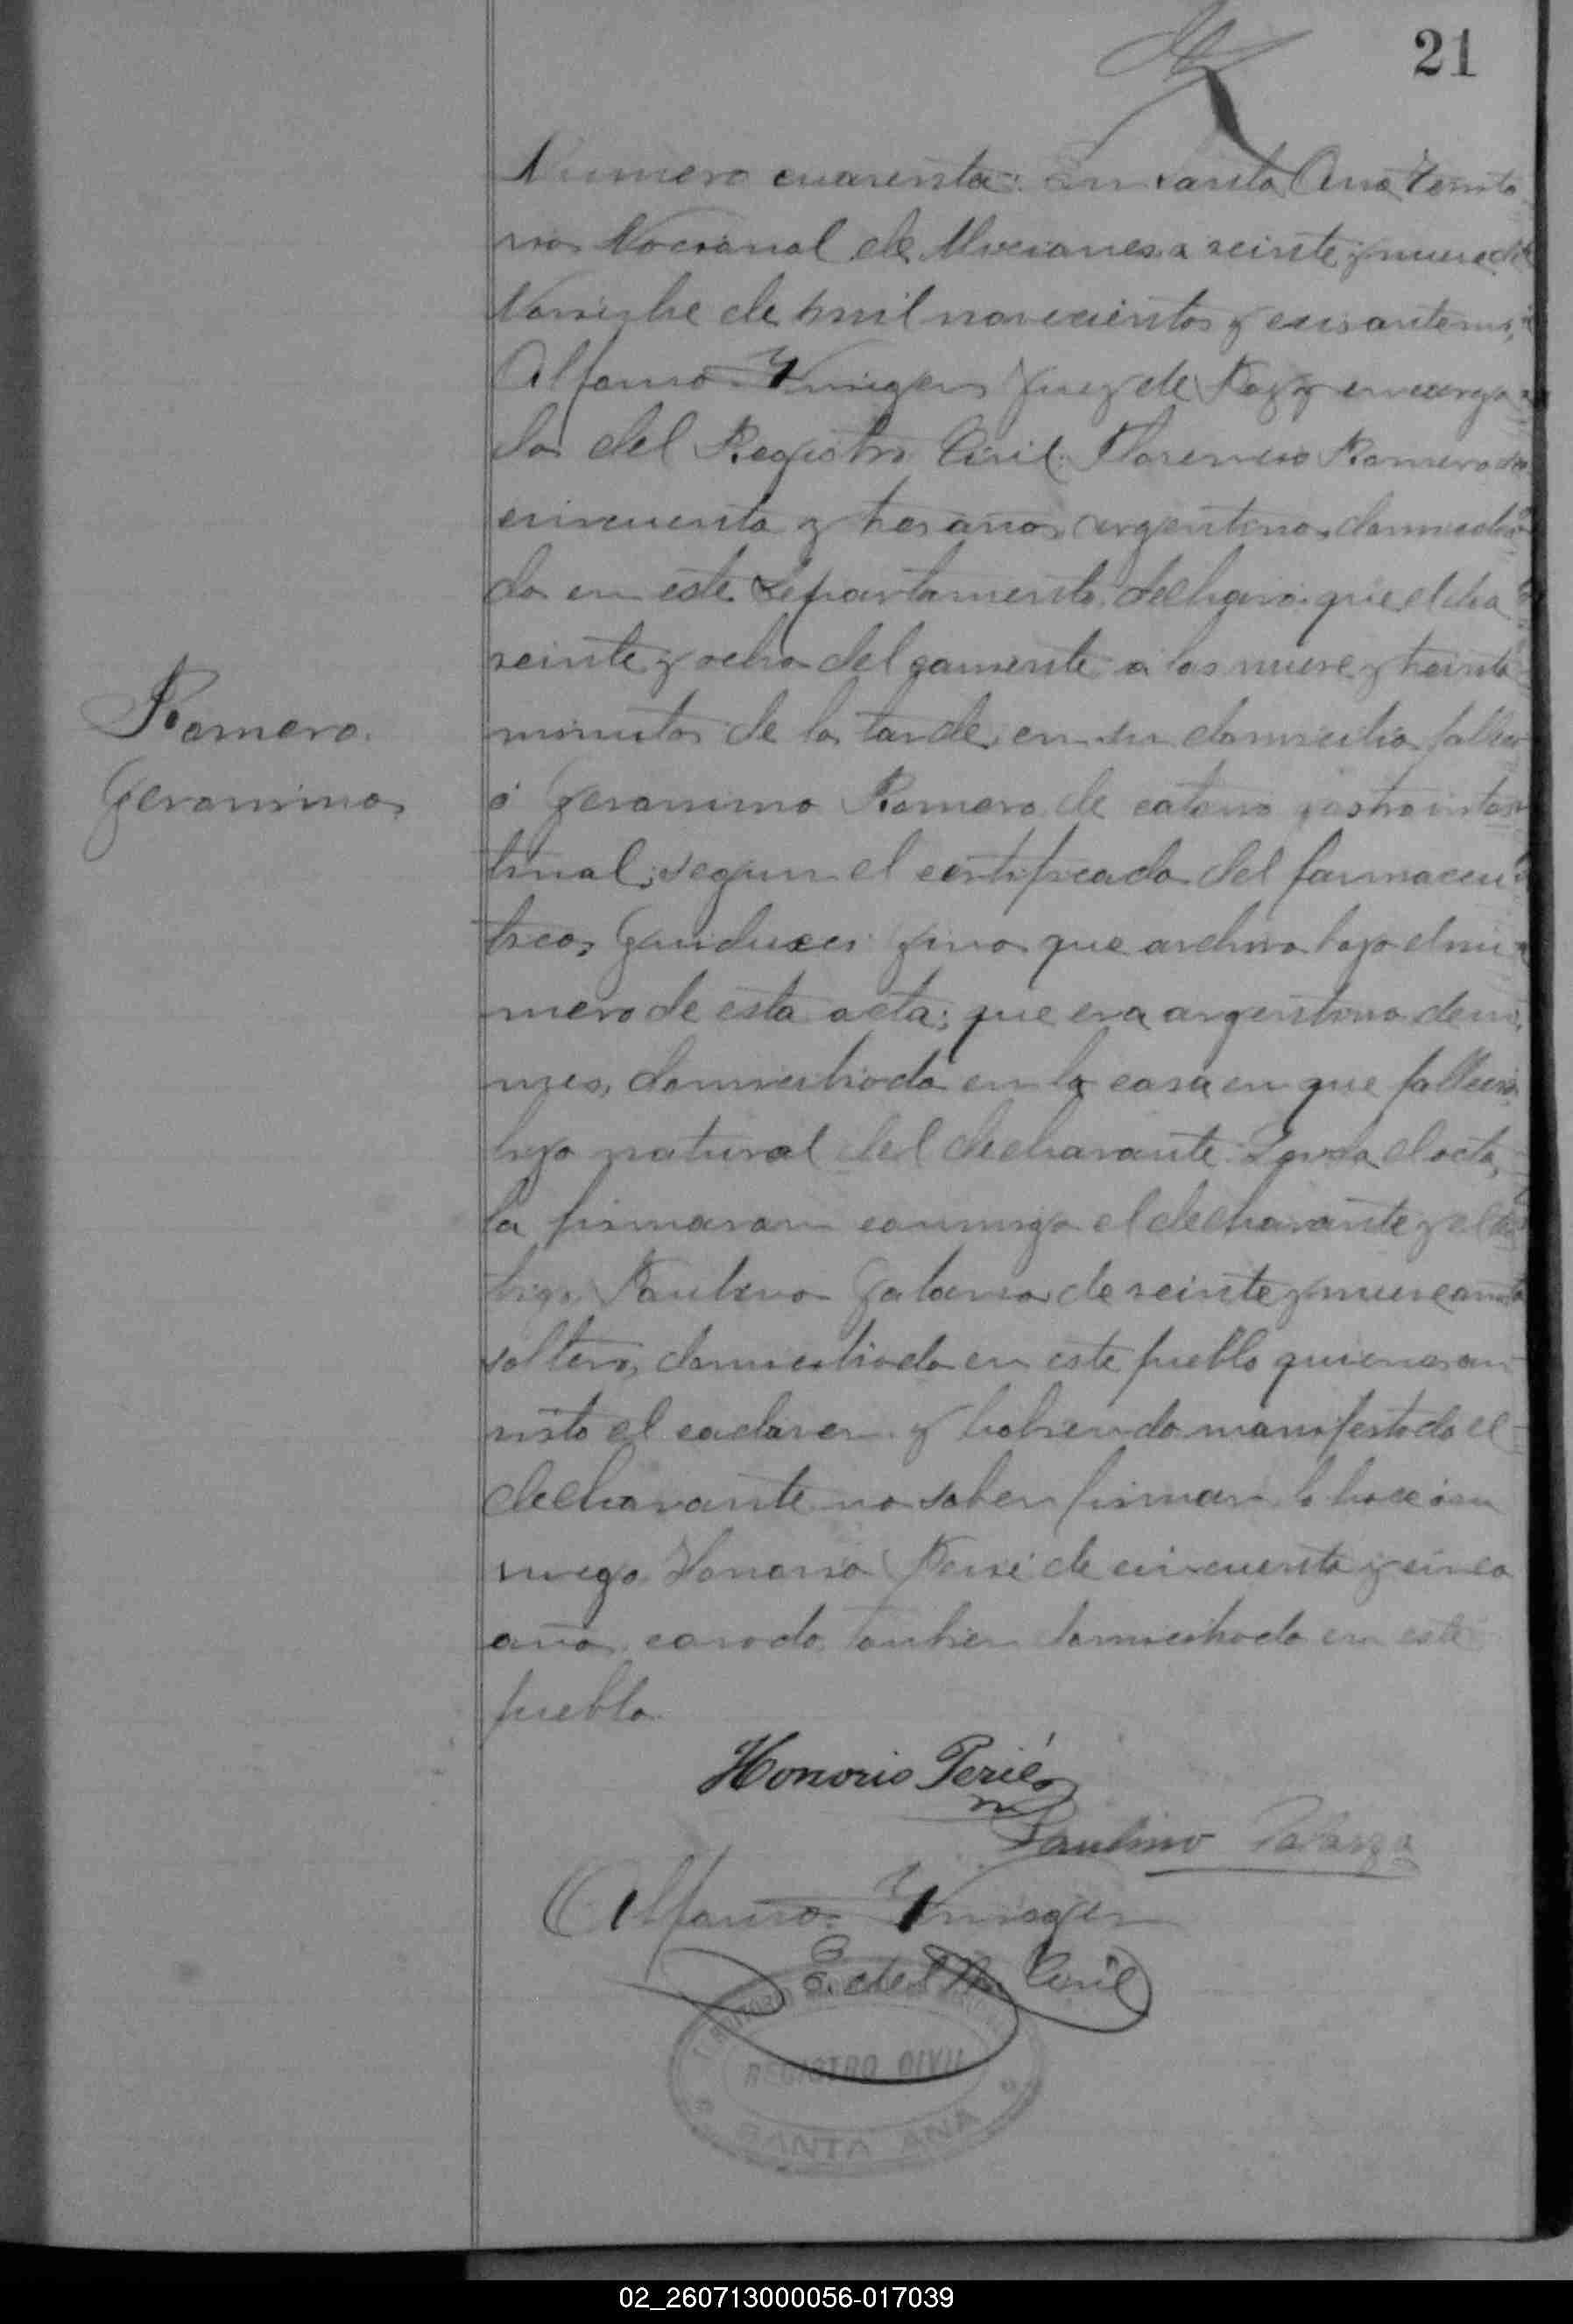 21
Numero cuarenta: En Santa Ana, Territo
rio Nacional de Misiones a veinte y nueve de
Noviembre de mil novecientos y seis ante mi,
Alfonso Juez de Paz y encarga
do del Registro Civil: Florencio Romero de
cincuenta y tres años, argentino, domicilia
do en este departamento, declaró: que el dia
veinte y ocho del corriente a las nueve y treinta
minutos de la tarde, en su domicilio fallec
ó Geronimo Romero de cataro gastro intes
tinal, segun el certificado del farmaceu
tico, que archivo bajo el nu
mero de esta acta; que era argentino de un
mes, domiciliado en la casa en que falleció
hijo natural del declarante. Leida el acta,
la firmaron conmigo el declarante y el tes
tigo Paulino de veinte y nueve años
soltero, domiciliado en este pueblo quienes an
visto el cadaver y habiendo manifestado el
declarante no saber firmar lo hace á su
ruego Honorio Perié de cincuenta y cinco
años, casado tambien domiciliado en este
pueblo.
Romero
Geronimo
Honorio Perié
Paulino
Alfonso
E. del R. Civil
REGISTRO CIVIL
SANTA ANA
02_260713000056-017039